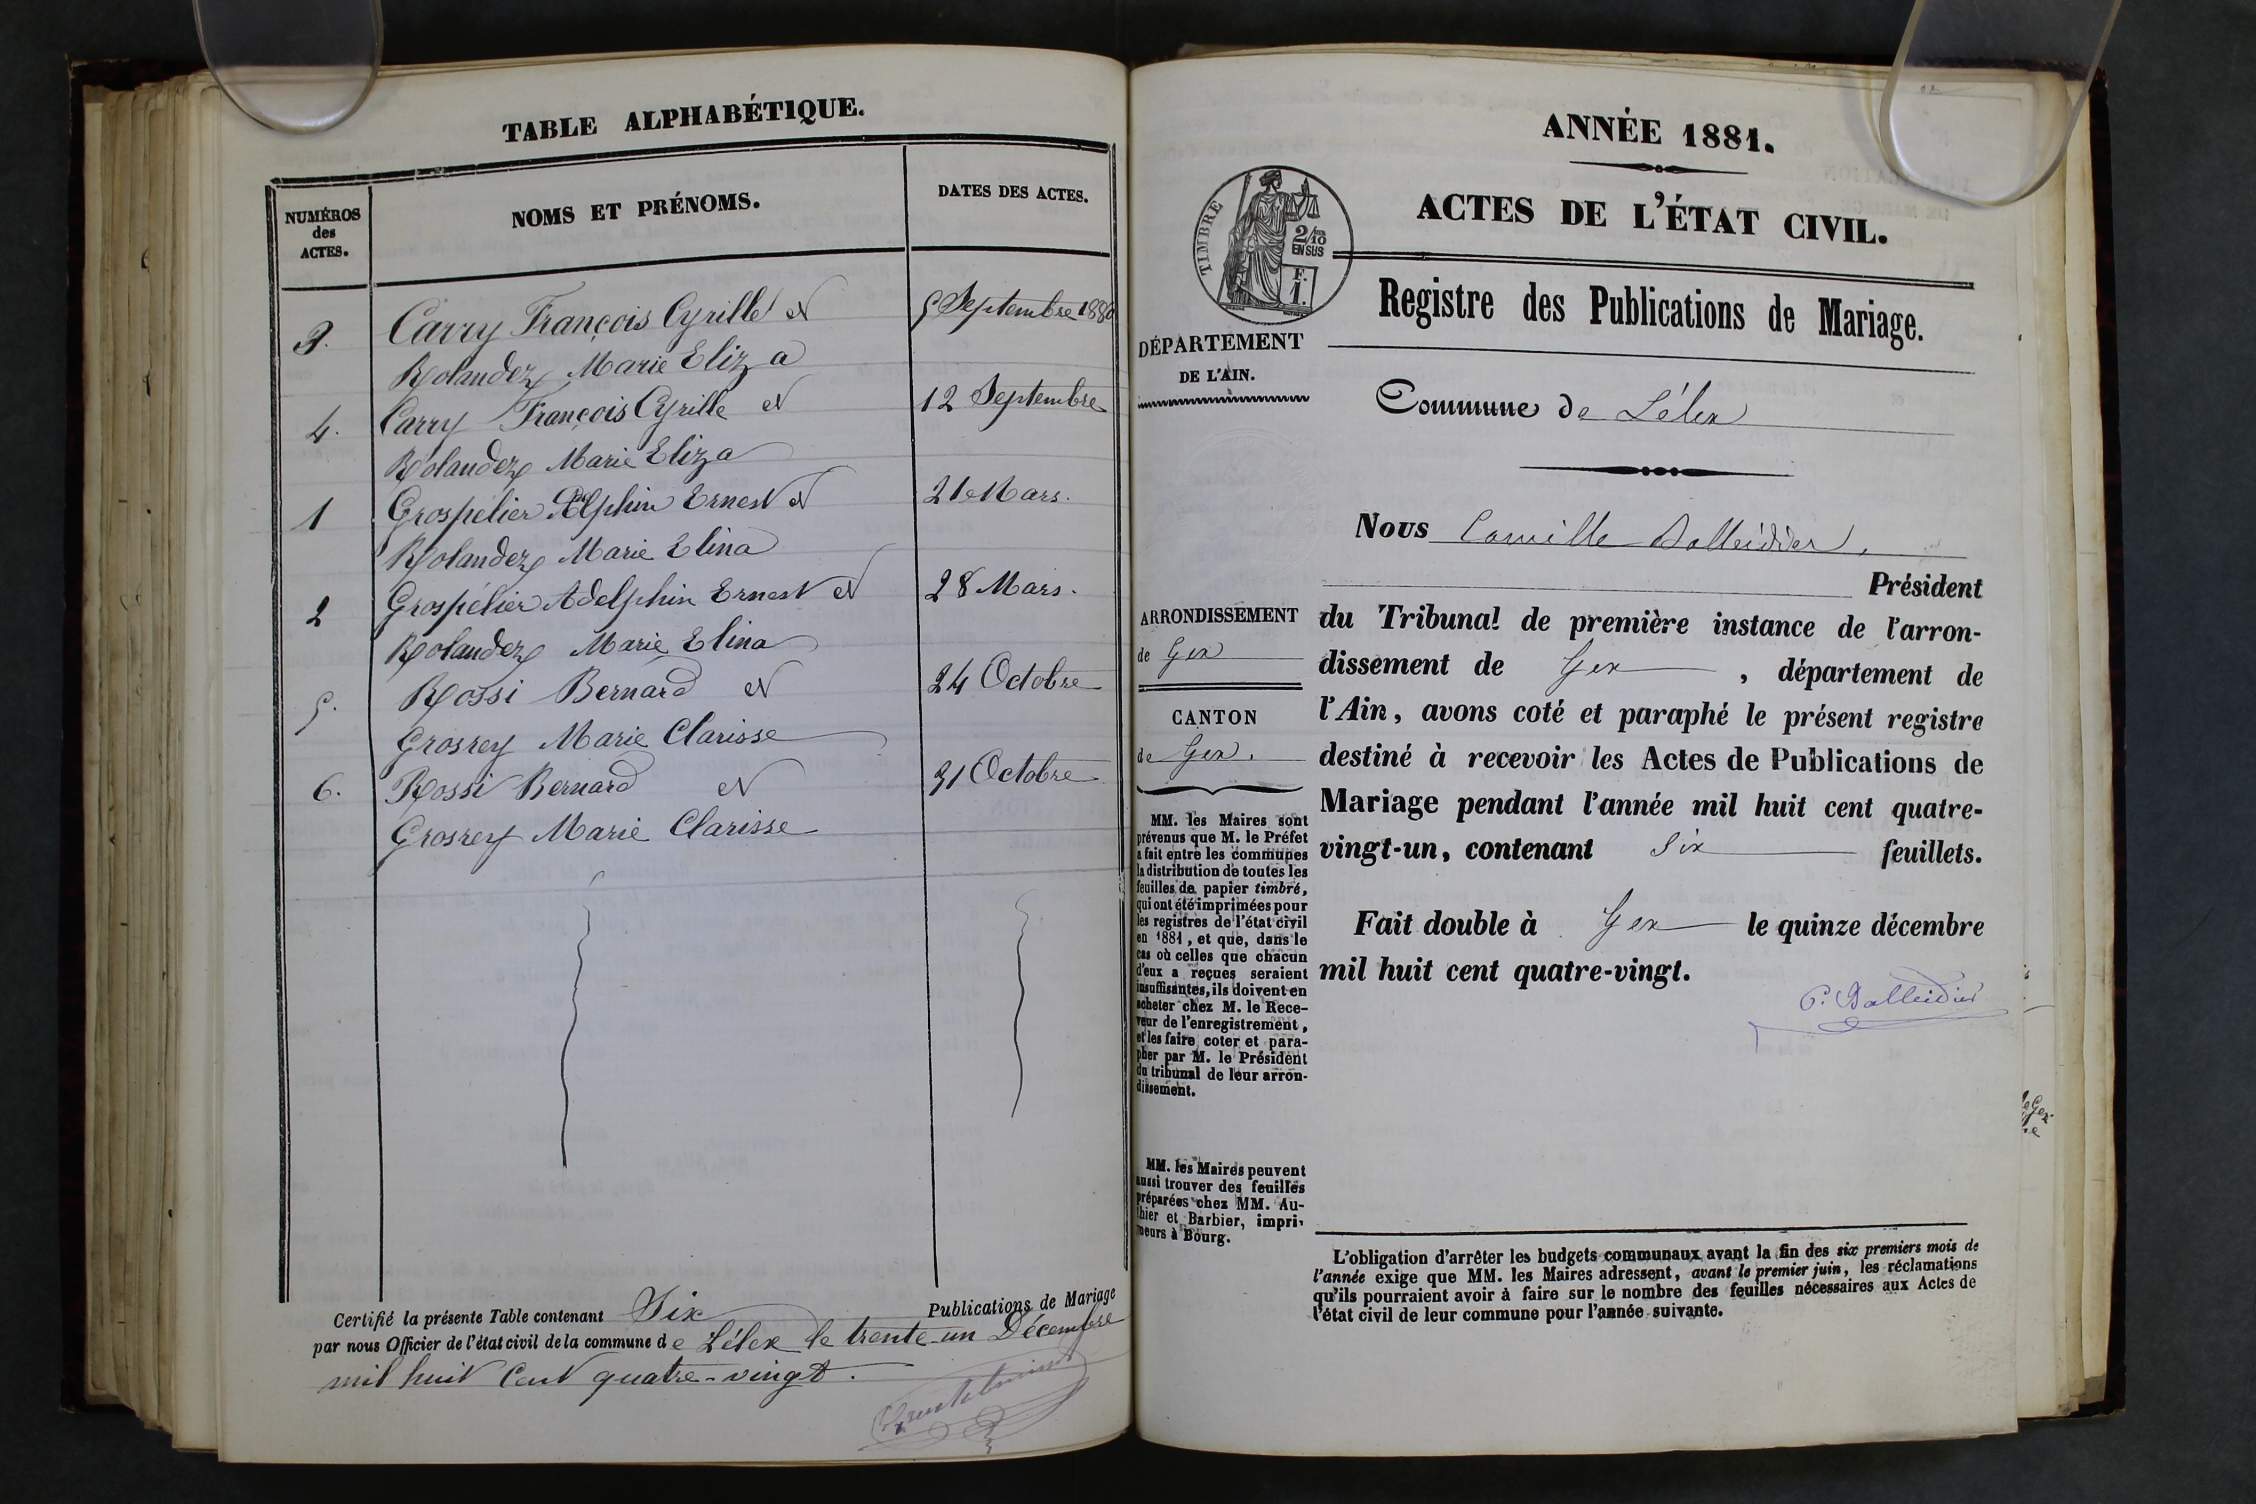 TABLE ALPHABÉTIQUE.
NUMÉROS
des
ACTES.
NOMS ET PRÉNOMS.
DATES DES ACTES.
3. Carry François Cyrille et 5 Septembre 1880
Rolandez Marie Eliza
4. Carry François Cyrille et 12 Septembre
Rolandez Marie Eliza
1 Grospélier Adelphin Ernest et 21 Mars.
Rolandez Marie Elina
2 Grospélier Adelphin Ernest et 28 Mars.
Rolandez Marie Elina
5. Rossi Bernard et 24 Octobre
Grosrey Marie Clarisse
6. Rossi Bernard et 31 Octobre
Grosrey Marie Clarisse
Certifié la présente Table contenant Six Publications de Mariage
par nous Officier de l'état civil de la commune de Lélex le trente-un Décembre
mil huit cent quatre-vingt.
ANNÉE 1881.
ACTES DE L'ÉTAT CIVIL.
TIMBRE
2/10
EN SUS
F.
1.
Registre des Publications de Mariage.
DÉPARTEMENT
DE L'AIN.
Commune de Lélex
Nous Camille Balleidier,
Président
du Tribunal de première instance de l'arron-
dissement de Gex, département de
l'Ain, avons coté et paraphé le présent registre
destiné à recevoir les Actes de Publications de
Mariage pendant l'année mil huit cent quatre-
vingt-un, contenant Six feuillets.
Fait double à Gex le quinze décembre
mil huit cent quatre-vingt.
C. Balleidier
ARRONDISSEMENT
de Gex
CANTON
de Gex.
MM. les Maires sont
prévenus que M. le Préfet
a fait entre les communes
la distribution de toutes les
feuilles de papier timbré,
qui ont été imprimées pour
les registres de l'état civil
en 1881, et que, dans le
cas où celles que chacun
d'eux a reçues seraient
insuffisantes, ils doivent en
acheter chez M. le Rece-
veur de l'enregistrement,
et les faire coter et para-
pher par M. le Président
du tribunal de leur arron-
dissement.
MM. les Maires peuvent
aussi trouver des feuilles
préparées chez MM. Au-
thier et Barbier, impri-
meurs à Bourg.
L'obligation d'arrêter les budgets communaux avant la fin des six premiers mois de
l'année exige que MM. les Maires adressent, avant le premier juin, les réclamations
qu'ils pourraient avoir à faire sur le nombre des feuilles nécessaires aux Actes de
l'état civil de leur commune pour l'année suivante.